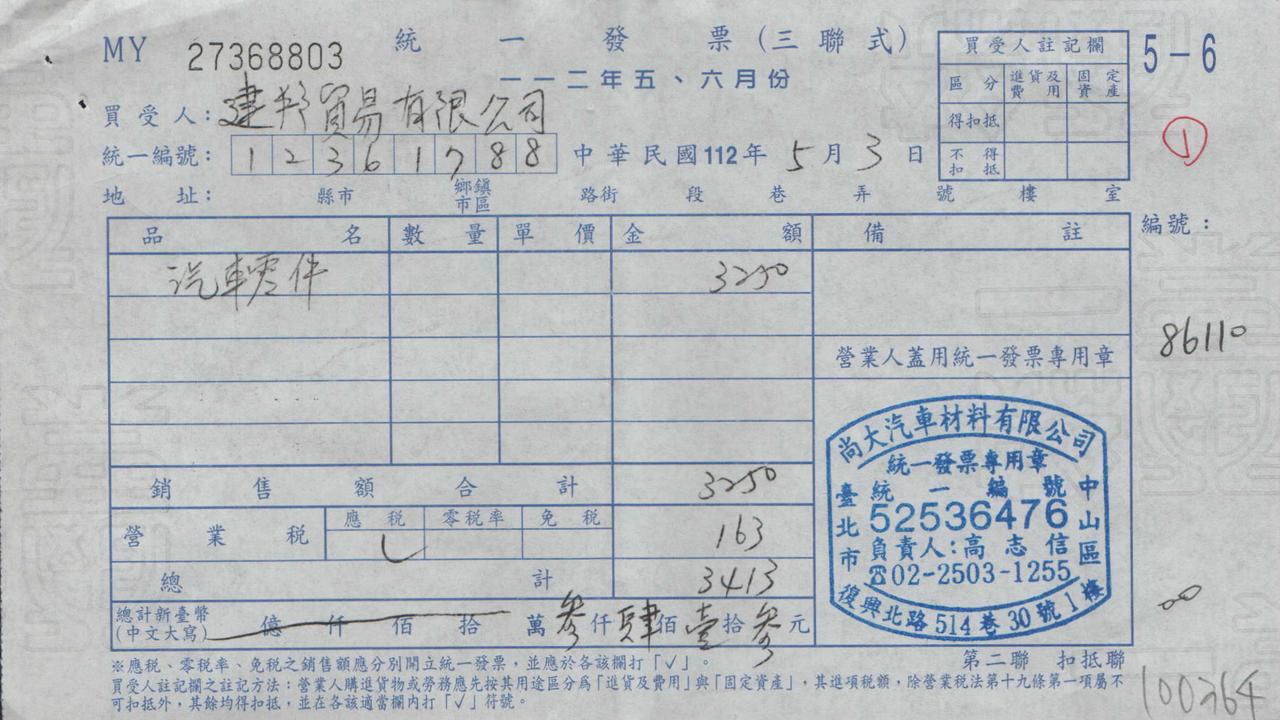 MY 27368803
統一發票(三聯式)
一一二年五、六月份
5-6
①
買受人註記欄
區分 進貨及費用 固定資產
得扣抵
不得扣抵
買受人:建邦貿易有限公司
統一編號: 12361788 中華民國112年5月3日
地址: 縣市 鄉鎮市區 路街 段 巷 弄 號 樓 室
品名 數量 單價 金額 備註
編號:
汽車零件 3250
86110
營業人蓋用統一發票專用章
銷售額合計 3250
營業稅 應稅 零稅率 免稅 163
總計 3413
總計新臺幣(中文大寫) 億仟佰拾萬參仟肆佰壹拾參元
尚大汽車材料有限公司
統一發票專用章
統一編號
52536476
負責人:高志信
☎02-2503-1255
臺北市中山區
復興北路514巷30號1樓
第二聯 扣抵聯
100364
※應稅、零稅率、免稅之銷售額應分別開立統一發票,並應於各該欄打「√」。
買受人註記欄之註記方法:營業人購進貨物或勞務應先按其用途區分為「進貨及費用」與「固定資產」,其進項稅額,除營業稅法第十九條第一項屬不
可扣抵外,其餘均得扣抵,並在各該適當欄內打「√」符號。